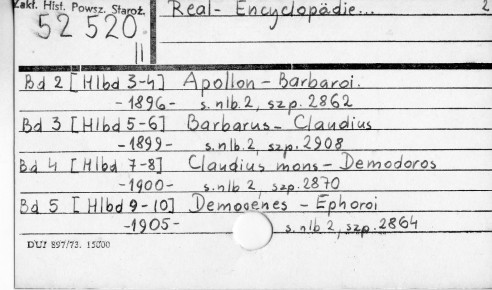 Zakł. Hist. Powsz. Staroż.
Real- Encyclopädie... 2
52 520
II
Bd 2 [Hlbd 3-4] Apollon - Barbaroi.
-1896- s.nlb.2, szp.2862
Bd 3 [Hlbd 5-6] Barbarus - Claudius
-1899- s.nlb.2, szp.2908
Bd 4 [Hlbd 7-8] Claudius mons - Demodoros
-1900- s.nlb 2, szp.2870
Bd 5 [Hlbd 9-10] Demogenes - Ephoroi
-1905- s.nlb 2, szp.2864
DUJ 897/73. 15000